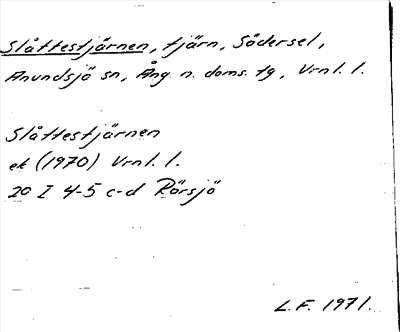 Slåttestjärnen, tjärn, Södersel,
Anundsjö sn, Ång. n. doms. tg, Vrnl. l.
Slåttestjärnen
ek (1970) Vrnl. l.
20 I 4-5 c-d Rörsjö
L.F. 1971.